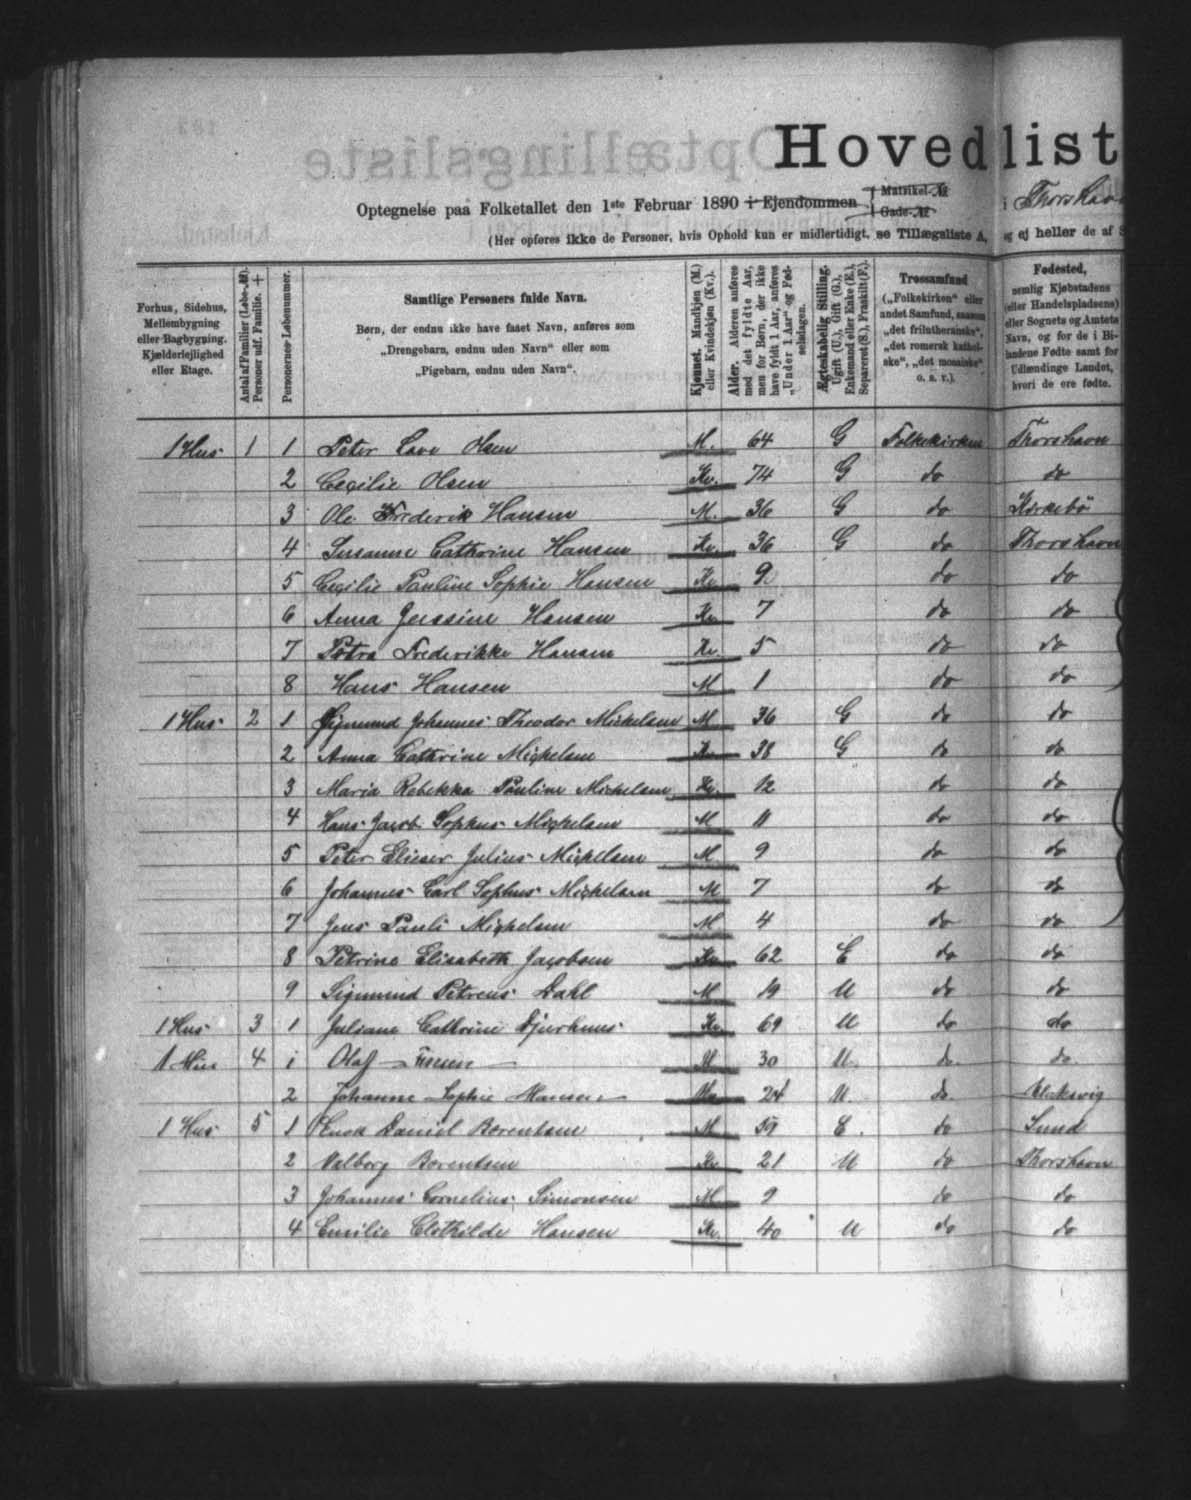 Hovedlist
Optegnelse paa Folketallet den 1ste Februar 1890 i Ejendommen Matrikel-№ Gade-№ i Thorshav
(Her opføres ikke de Personer, hvis Ophold kun er midlertidigt, se Tillægsliste A, og ej heller de af S
Forhus, Sidehus, Mellembygning eller Bagbygning. Kjælderlejlighed eller Etage.
Antal af Familier (Løbe-№). Personer udf. Familie. +
Personernes Løbenummer.
Samtlige Personers fulde Navn.
Børn, der endnu ikke have faaet Navn, anføres som
„Drengebarn, endnu uden Navn“ eller som
„Pigebarn, endnu uden Navn“.
Kjønnet. Mandkjøn (M.) eller Kvindekjøn (Kv.).
Alder. Alderen anføres med det fyldte Aar, men for Børn, der ikke have fyldt 1 Aar, anføres „Under 1 Aar“ og Fødselsdagen.
Ægteskabelig Stilling. Ugift (U.), Gift (G.), Enkemand eller Enke (E.), Separeret (S.), Fraskilt (F.).
Trossamfund („Folkekirken“ eller andet Samfund, saasom „det frilutheranske“, „det romersk katholske“, „det mosaiske“ o. s. v.).
Fødested, nemlig Kjøbstadens (eller Handelspladsens) eller Sognets og Amtets Navn, og for de i Bilandene Fødte samt for Udlændinge Landet, hvori de ere fødte.
1 Hus 1 1 Peter Lave Olsen M. 64 G Folkekirken Thorshavn
2 Cecilie Olsen Kv. 74 G do do
3 Ole Frederik Hansen M. 36 G do Kirkebö
4 Susanne Cathrine Hansen Kv 36 G do Thorshavn
5 Cecilie Pauline Sophie Hansen Kv 9 do do
6 Anna Jenssine Hansen Kv 7 do do
7 Petra Frederikke Hansen Kv. 5 do do
8 Hans Hansen M 1 do do
1 Hus 2 1 Sigmund Johannes Theodor Mickelsen M 36 G do do
2 Anna Cathrine Mickelsen Kv 38 G do do
3 Maria Rebekka Pauline Mickelsen Kv. 12 do do
4 Hans Jacob Sophus Mickelsen M 11 do do
5 Peter Elieser Julius Mickelsen M 9 do do
6 Johannes Carl Sophus Mickelsen M 7 do do
7 Jens Pauli Mickelsen M 4 do do
8 Petrine Elisabeth Jacobsen Kv 62 E do do
9 Sigmund Petreus Dahl M 19 U do do
1 Hus 3 1 Juliane Cathrine Djurhuus Kv 69 U do do
1 Hus 4 1 Olaf M 30 U do do
2 Johanne Sophie Hansen Kv 24 U do
1 Hus 5 1 Enok Daniel Berentsen M 59 E. do Sund
2 Valborg Berentsen Kv 21 U do Thorshavn
3 Johannes Cornelius Simonsen M 9 do do
4 Emilie Clothilde Hansen Kv. 40 U do do